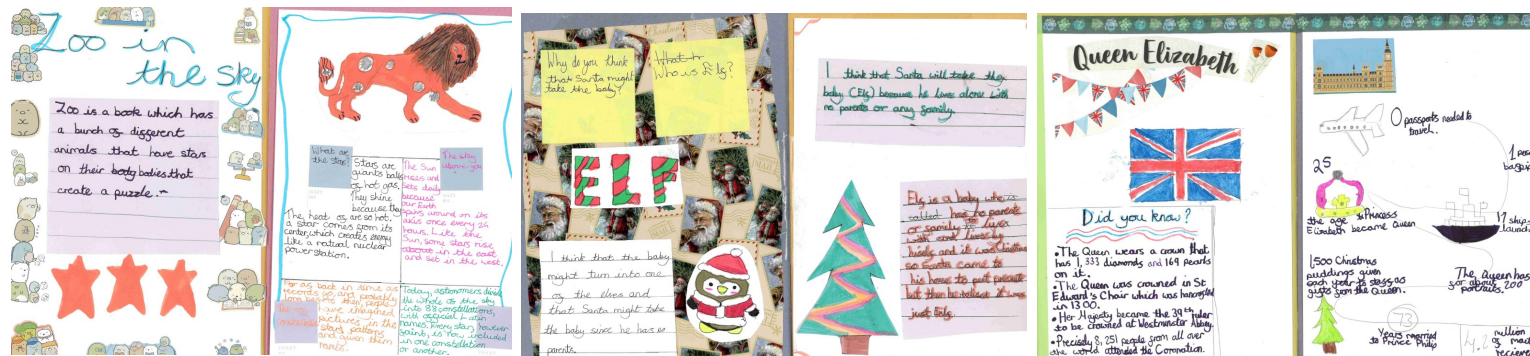 Zoo in
the sky
Zoo is a book which has
a bunch of different
animals that have stars
on their body bodies that
create a puzzle.
What are
the stars?
Stars are
giants balls
of hot gas.
They shine
because they
are so hot.
The heat of
a star comes from its
center, which creates energy
like a natural nuclear
power station.
The sky
above you
The Sun
rises and
sets daily
because
our Earth
spins around on its
axis once every 24
hours. Like the
Sun, some stars rise
in the east
and set in the west.
For as back in time as
records go and probably
long before then, people
have imagined
pictures in the
stars patterns
and given them
names.
Today, astronomers divide
the whole of the sky
into 88 constellations,
with official Latin
names. Every star, however
faint, is now included
in one constellation
or another.
Why do you think
that Santa might
take the baby?
What
Who is Elf?
ELF
I think that the baby
might turn into one
of the elves and
that Santa might take
the baby since he has no
parents.
I think that Santa will take the
baby (Elf) because he lives alone with
no parents or any family.
Elf is a baby who is
called has no parents
or family to live
with and lives
and it was Christmas
so Santa came to
his home to put presents
but then he it was
just Elf.
Queen Elizabeth
Did you know?
• The Queen wears a crown that
has 1,333 diamonds and 169 pearls
on it.
• The Queen was crowned in St
Edward's Chair which was
in 1300.
• Her Majesty became the 39th ruler
to be crowned at Westminster Abbey.
• Precisely 8,251 people from all over
the world attended the Coronation.
0 passports needed to
travel.
25
the age Princess
Elizabeth became Queen
17 ship
1500 Christmas
puddings given
each year to staff as
gifts from the Queen.
The Queen has
for about
portraits 200
73
Years married
to Prince Philip